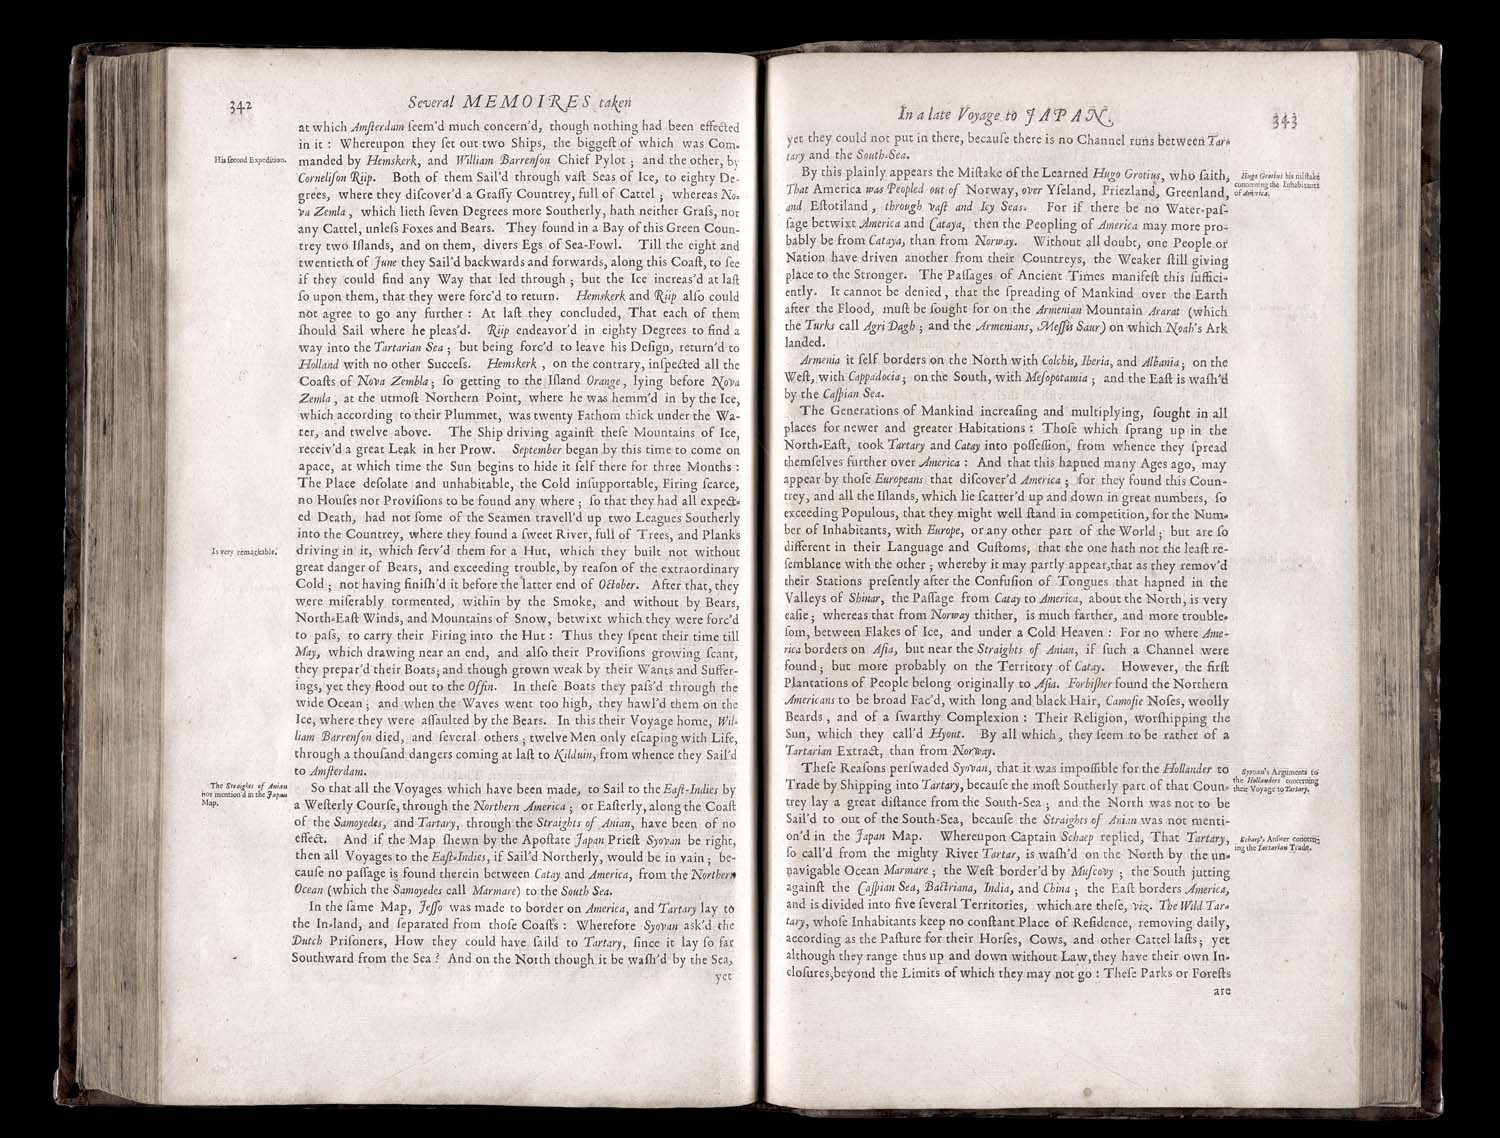 342
Several MEMOIRES taken
at which Amſterdam ſeem'd much concern'd, though nothing had been effected
in it : Whereupon they ſet out two Ships, the biggeſt of which was Com-
His ſecond Expedition.
manded by Hemskerk, and William Barrenſon Chief Pylot ; and the other, by
Corneliſon Riip. Both of them Sail'd through vaſt Seas of Ice, to eighty De-
grees, where they diſcover'd a Graſſy Countrey, full of Cattel ; whereas No-
va Zemla, which lieth ſeven Degrees more Southerly, hath neither Graſs, nor
any Cattel, unleſs Foxes and Bears. They found in a Bay of this Green Coun-
trey two Iſlands, and on them, divers Egs of Sea-Fowl. Till the eight and
twentieth of June they Sail'd backwards and forwards, along this Coaſt, to ſee
if they could find any Way that led through ; but the Ice increas'd at laſt
ſo upon them, that they were forc'd to return. Hemskerk and Riip alſo could
not agree to go any further : At laſt they concluded, That each of them
ſhould Sail where he pleas'd. Riip endeavor'd in eighty Degrees to find a
way into the Tartarian Sea ; but being forc'd to leave his Deſign, return'd to
Holland with no other Succeſs. Hemskerk, on the contrary, inſpected all the
Coaſts of Nova Zembla ; ſo getting to the Iſland Orange, lying before Nova
Zemla, at the utmoſt Northern Point, where he was hemm'd in by the Ice,
which according to their Plummet, was twenty Fathom thick under the Wa-
ter, and twelve above. The Ship driving againſt theſe Mountains of Ice,
receiv'd a great Leak in her Prow. September began by this time to come on
apace, at which time the Sun begins to hide it ſelf there for three Months :
The Place deſolate and unhabitable, the Cold inſupportable, Firing ſcarce,
no Houſes nor Proviſions to be found any where ; ſo that they had all expect-
ed Death, had not ſome of the Seamen travell'd up two Leagues Southerly
into the Countrey, where they found a ſweet River, full of Trees, and Planks
Is very remarkable.
driving in it, which ſerv'd them for a Hut, which they built not without
great danger of Bears, and exceeding trouble, by reaſon of the extraordinary
Cold ; not having finiſh'd it before the latter end of October. After that, they
were miſerably tormented, within by the Smoke, and without by Bears,
North-Eaſt Winds, and Mountains of Snow, betwixt which they were forc'd
to paſs, to carry their Firing into the Hut : Thus they ſpent their time till
May, which drawing near an end, and alſo their Proviſions growing ſcant,
they prepar'd their Boats; and though grown weak by their Wants and Suffer-
ings, yet they ſtood out to the Offin. In theſe Boats they paſs'd through the
wide Ocean ; and when the Waves went too high, they hawl'd them on the
Ice, where they were aſſaulted by the Bears. In this their Voyage home, Wil-
liam Barrenſon died, and ſeveral others ; twelve Men only eſcaping with Life,
through a thouſand dangers coming at laſt to Kilduin, from whence they Sail'd
to Amſterdam.
The Straights of Anian
not mention'd in the Japan
Map.
So that all the Voyages which have been made, to Sail to the Eaſt-Indies by
a Weſterly Courſe, through the Northern America ; or Eaſterly, along the Coaſt
of the Samoyedes, and Tartary, through the Straights of Anian, have been of no
effect. And if the Map ſhewn by the Apoſtate Japan Prieſt Syovan be right,
then all Voyages to the Eaſt-Indies, if Sail'd Northerly, would be in vain ; be-
cauſe no paſſage is found therein between Catay and America, from the Northern
Ocean (which the Samoyedes call Marmare) to the South Sea.
In the ſame Map, Jeſſo was made to border on America, and Tartary lay to
the In-land, and ſeparated from thoſe Coaſts : Wherefore Syovan ask'd the
Dutch Priſoners, How they could have ſaild to Tartary, ſince it lay ſo far
Southward from the Sea ? And on the North though it be waſh'd by the Sea,
yet
In a late Voyage to JAPAN.
343
yet they could not put in there, becauſe there is no Channel runs between Tar-
tary and the South-Sea.
Hugo Grotius his miſtake
concerning the Inhabitants
of America.
By this plainly appears the Miſtake of the Learned Hugo Grotius, who ſaith,
That America was Peopled out of Norway, over Yſeland, Priezland, Greenland,
and Eſtotiland, through vaſt and Icy Seas. For if there be no Water-paſ-
ſage betwixt America and Cataya, then the Peopling of America may more pro-
bably be from Cataya, than from Norway. Without all doubt, one People or
Nation have driven another from their Countreys, the Weaker ſtill giving
place to the Stronger. The Paſſages of Ancient Times manifeſt this ſuffici-
ently. It cannot be denied, that the ſpreading of Mankind over the Earth
after the Flood, muſt be ſought for on the Armenian Mountain Ararat (which
the Turks call Agri Dagh ; and the Armenians, Meſſis Saur) on which Noah's Ark
landed.
Armenia it ſelf borders on the North with Colchis, Iberia, and Albania ; on the
Weſt, with Cappadocia ; on the South, with Meſopotamia ; and the Eaſt is waſh'd
by the Caſpian Sea.
The Generations of Mankind increaſing and multiplying, ſought in all
places for newer and greater Habitations : Thoſe which ſprang up in the
North-Eaſt, took Tartary and Catay into poſſeſſion, from whence they ſpread
themſelves further over America : And that this hapned many Ages ago, may
appear by thoſe Europeans that diſcover'd America ; for they found this Coun-
trey, and all the Iſlands, which lie ſcatter'd up and down in great numbers, ſo
exceeding Populous, that they might well ſtand in competition, for the Num-
ber of Inhabitants, with Europe, or any other part of the World ; but are ſo
different in their Language and Cuſtoms, that the one hath not the leaſt re-
ſemblance with the other ; whereby it may partly appear, that as they remov'd
their Stations preſently after the Confuſion of Tongues that hapned in the
Valleys of Shinar, the Paſſage from Catay to America, about the North, is very
eaſie ; whereas that from Norway thither, is much farther, and more trouble-
ſom, between Flakes of Ice, and under a Cold Heaven : For no where Ame-
rica borders on Aſia, but near the Straights of Anian, if ſuch a Channel were
found ; but more probably on the Territory of Catay. However, the firſt
Plantations of People belong originally to Aſia. Forbiſher found the Northern
Americans to be broad Fac'd, with long and black Hair, Camoſie Noſes, woolly
Beards, and of a ſwarthy Complexion : Their Religion, worſhipping the
Sun, which they call'd Hyout. By all which, they ſeem to be rather of a
Tartarian Extract, than from Norway.
Syovan's Arguments to
the Hollanders concerning
their Voyage to Tartary.
Theſe Reaſons perſwaded Syovan, that it was impoſſible for the Hollander to
Trade by Shipping into Tartary, becauſe the moſt Southerly part of that Coun-
trey lay a great diſtance from the South-Sea ; and the North was not to be
Sail'd to out of the South-Sea, becauſe the Straights of Anian was not menti-
on'd in the Japan Map. Whereupon Captain Schaep replied, That Tartary,
Schaep's Anſwer concern-
ing the Tartarian Trade.
ſo call'd from the mighty River Tartar, is waſh'd on the North by the un-
navigable Ocean Marmare ; the Weſt border'd by Muſcovy ; the South jutting
againſt the Caſpian Sea, Bactriana, India, and China ; the Eaſt borders America,
and is divided into five ſeveral Territories, which are theſe, viz. The Wild Tar-
tary, whoſe Inhabitants keep no conſtant Place of Reſidence, removing daily,
according as the Paſture for their Horſes, Cows, and other Cattel laſts ; yet
although they range thus up and down without Law, they have their own In-
cloſures, beyond the Limits of which they may not go : Theſe Parks or Foreſts
are